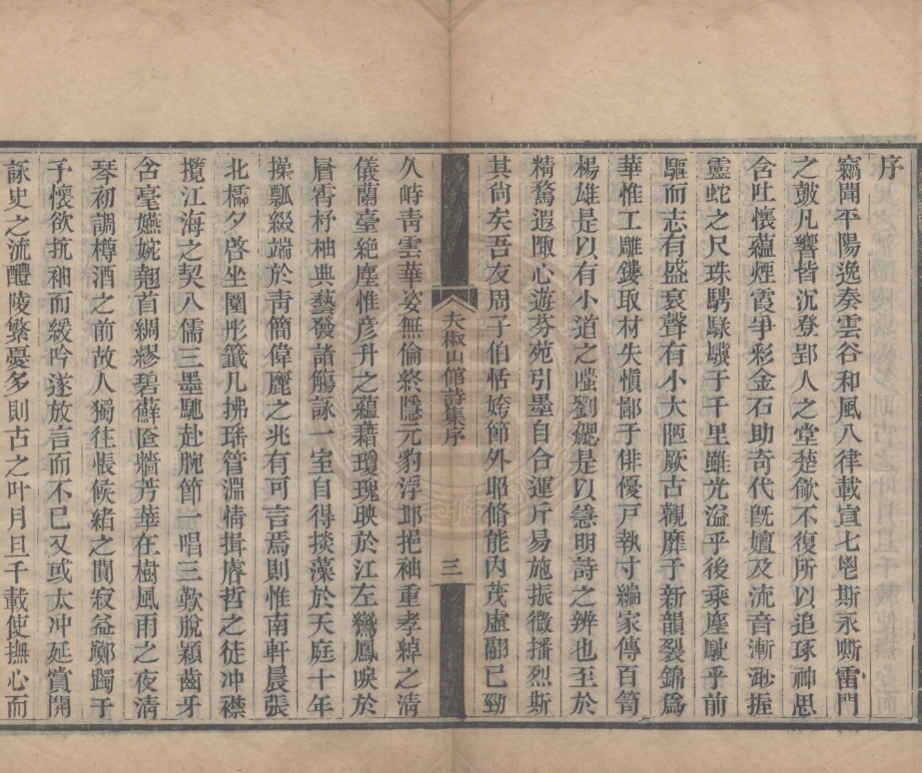 序
竊聞平陽逸奏雲谷和風八律載宣七鬯斯永嘶雷門
之皷凡響皆沉登郢人之堂楚歈不復所以追琢神思
含吐懷蘊煙霞爭彩金石助奇代旣嬗及流音漸渺握
靈蛇之尺珠騁騄驥于千里雖光溢乎後乘塵駛乎前
驅而志有盛衰聲有小大陋厥古觀靡于新韻裂錦爲
華惟工雕鏤取材失愼鄙于俳優戸執寸編家傳百笥
楊雄是以有小道之嗤劉勰是以急明詩之辨也至於
精騖遐陬心遊芬苑引墨自合運斤易施振微播烈斯
其尙矣吾友周子伯恬姱節外昭脩能內茂虛翮已勁
夫椒山館詩集序
三
久峙靑雲華姿無倫終隱元豹浮邱挹袖重孝綽之淸
儀蘭臺絶塵惟彦升之蘊藉瓊瑰映於江左鸞鳳唳於
層霄杼柚典藝發諸觴詠一室自得掞藻於天庭十年
操瓢綴端於靑簡偉麗之兆有可言焉則惟南軒晨張
北櫺夕啓坐圍彤籤几拂瑤管淵情揖睿哲之徒冲襟
攬江海之契八儒三墨馳赴腕節一唱三歎脫穎齒牙
含毫嬿婉翹首綢繆碧蘚陰牆芳華在樹風雨之夜淸
琴初調樽酒之前故人獨往悵候緒之閴寂益躑躅于
予懷欲抗袖而緩吟遂放言而不已又或太冲延賞閒
詠史之流醴陵繁憂多則古之叶月旦千載使撫心而